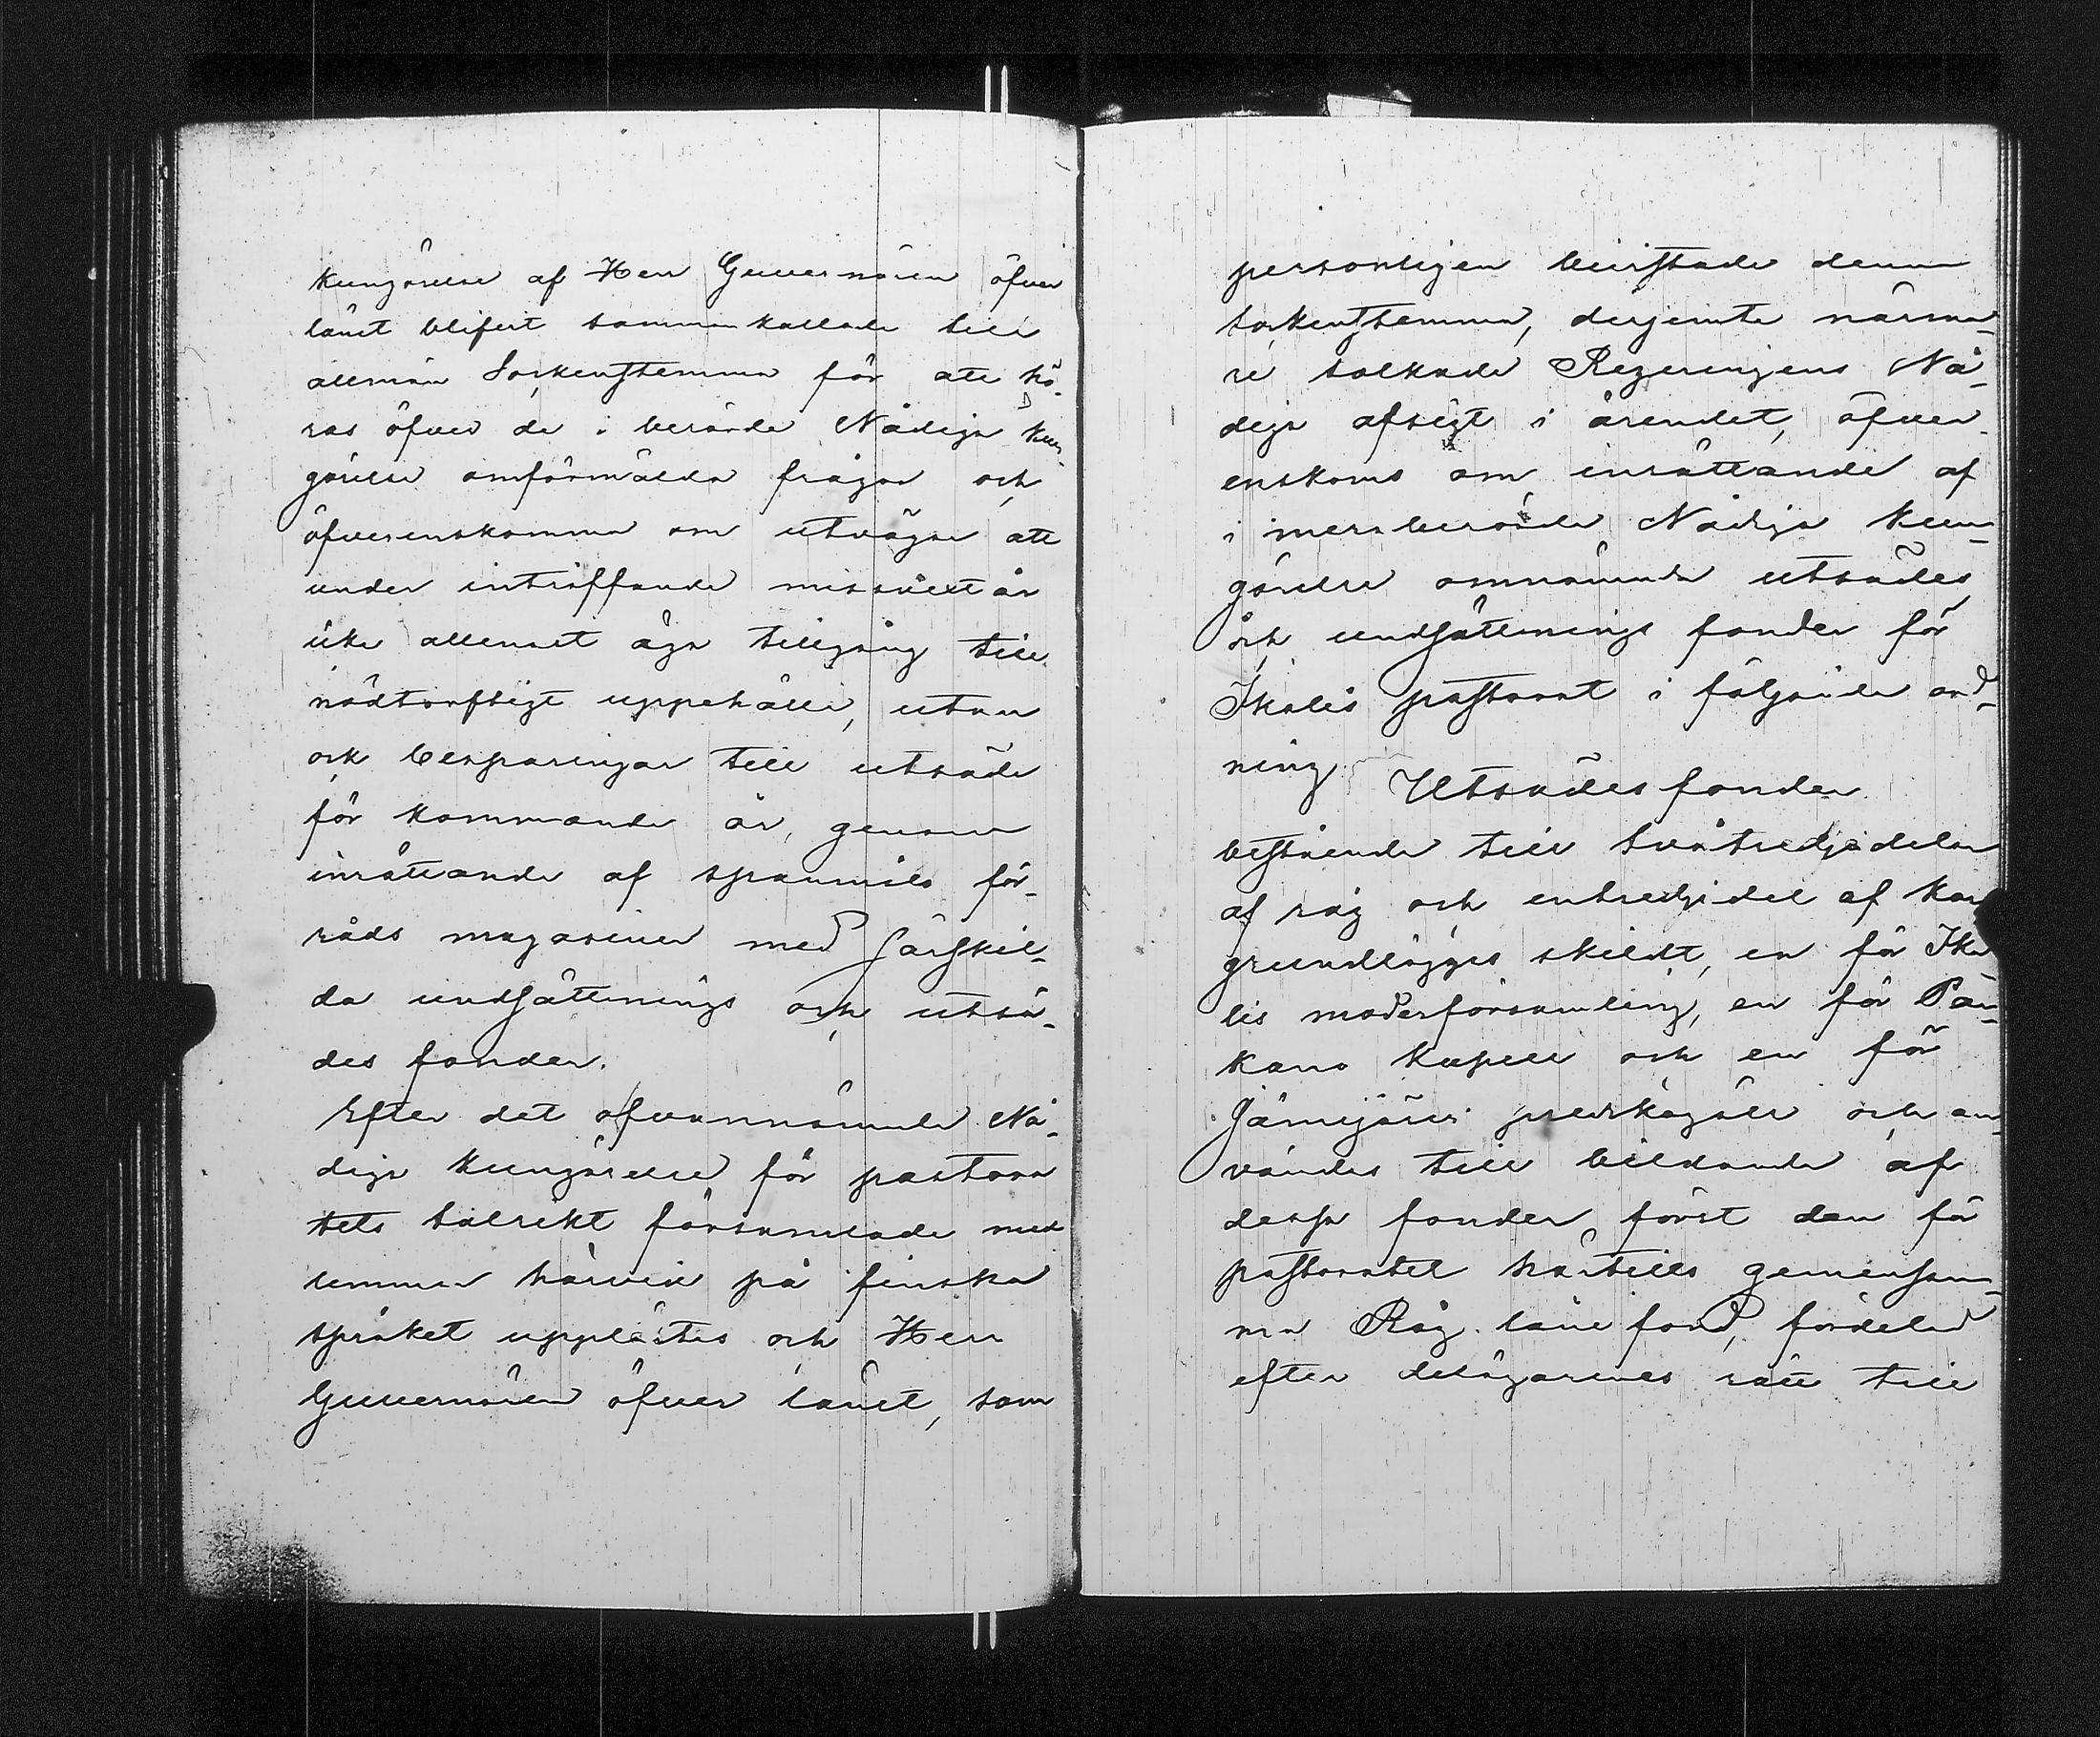 kungörelse af Herr Guvernören öfver
länet blifvit sammankallade till
allmän Sockenstemma för att hö-
ras öfver de i berörde Nådiga kun-
görelse omförmälda frågor och
öfverenskomma om utvägar att
under inträffande missväxt år
icke allenast äga tillgång till
nödtorftigt uppehälle, utan
ock besparingar till utsäde
för kommande år, genom
inrättande af spannmåls för-
råds magasiner med särskil-
da undsättnings och utsä-
des fonder.
Efter det ofvannämnde Nå-
diga kungörelse för pastora
tets talrikt församlade med
lemmar härvid på finska
språket upplästes och Herr
Guvernören öfver länet, som
personligen bevistade denna
sockenstemma, derjemte närma-
re tolkade Regeringens Nå-
diga afsigt i ärendet, öfver-
enskoms om inrättande af
i merberörde Nådiga kun-
görelse omnämnda utsädes
och undsättnings fonder för
Ikalis pastorat i följande ord-
ning
Utsädes fonder
bestående till tvåtredjedelar
af råg och entredjedel af kor
grundlägges skildt, en för Ika
lis moderförsamling, en för Par-
kano kapell och en för
Jämijärvi predikogäll och an-
vändes till bildande af
dessa fonder, först den för
pastoratet härtills gemensam-
ma Råg låne fond, fördelad
efter delägarenes rätt till